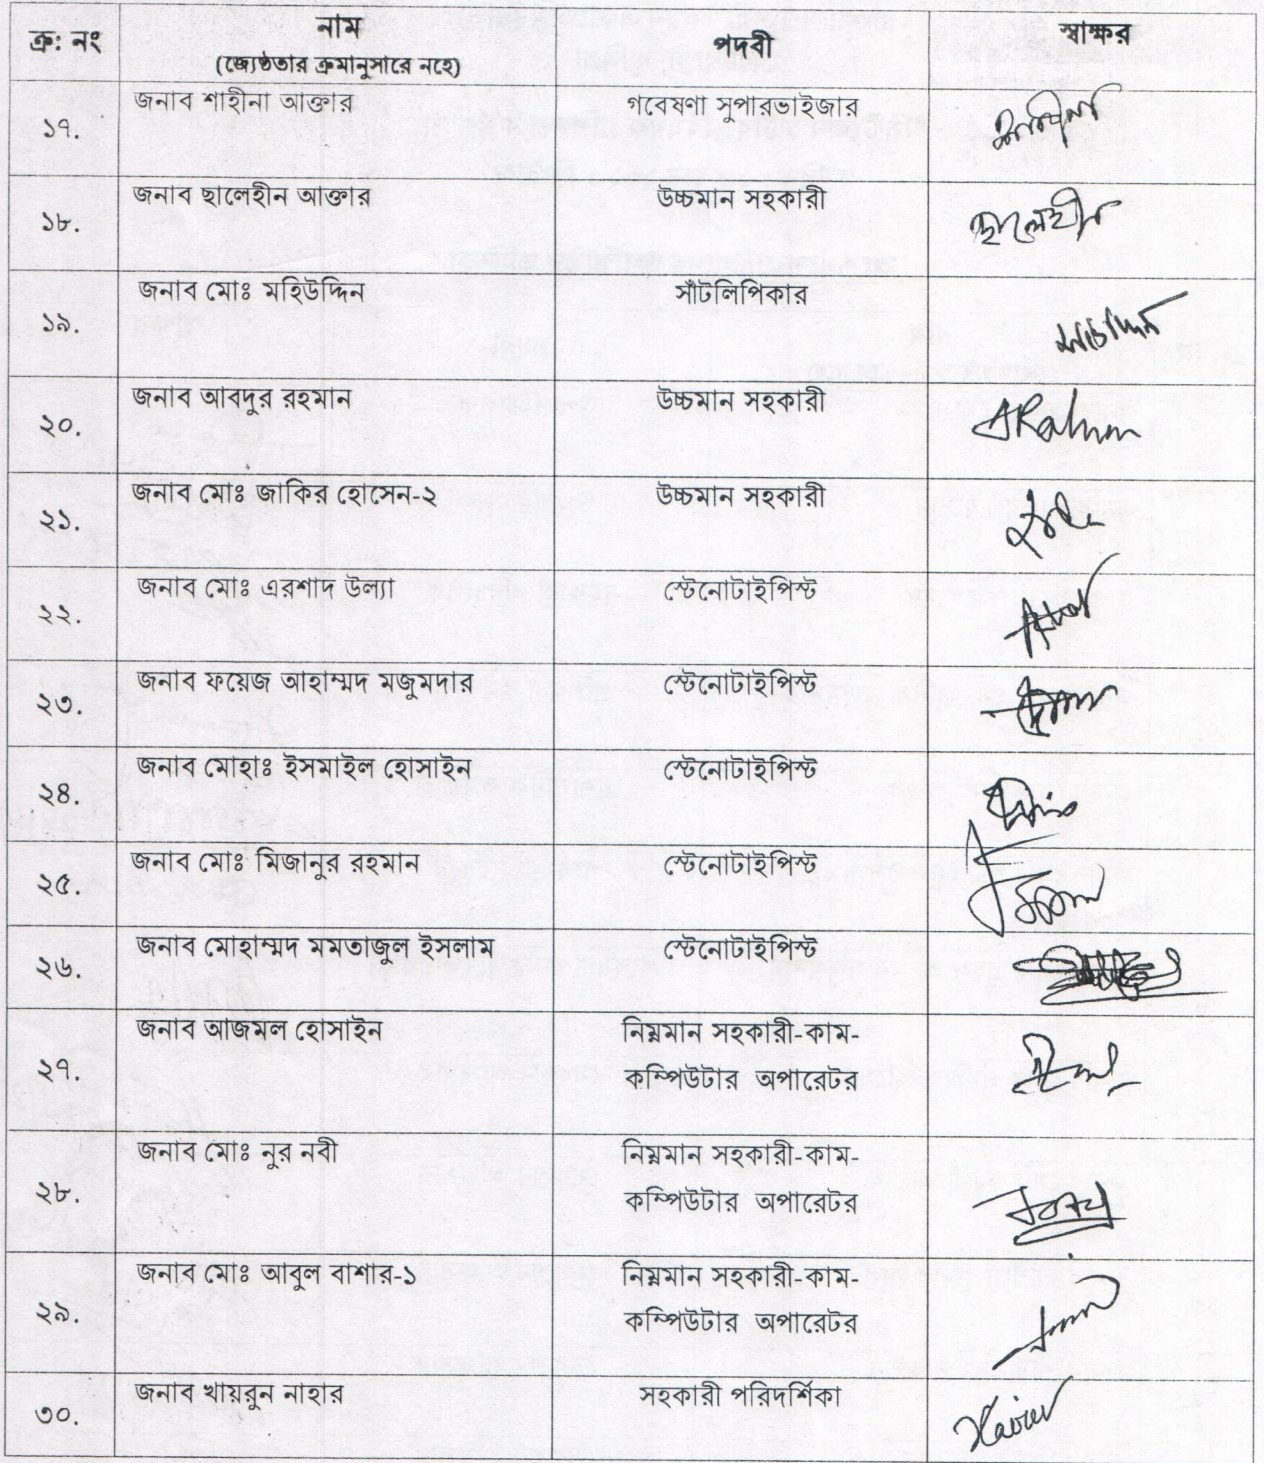 ক্র: নং নাম পদবী স্বাক্ষর
(জ্যেষ্ঠতার ক্রমানুসারে নহে)
১৭. জনাব শাহীনা আক্তার গবেষণা সুপারভাইজার
১৮. জনাব ছালেহীন আক্তার উচ্চমান সহকারী ছালেহীন
১৯. জনাব মোঃ মহিউদ্দিন সাঁটলিপিকার
২০. জনাব আবদুর রহমান উচ্চমান সহকারী ARahman
২১. জনাব মোঃ জাকির হোসেন-২ উচ্চমান সহকারী
২২. জনাব মোঃ এরশাদ উল্যা স্টেনোটাইপিস্ট
২৩. জনাব ফয়েজ আহাম্মদ মজুমদার স্টেনোটাইপিস্ট
২৪. জনাব মোহাঃ ইসমাইল হোসাইন স্টেনোটাইপিস্ট
২৫. জনাব মোঃ মিজানুর রহমান স্টেনোটাইপিস্ট
২৬. জনাব মোহাম্মদ মমতাজুল ইসলাম স্টেনোটাইপিস্ট
২৭. জনাব আজমল হোসাইন নিম্নমান সহকারী-কাম-
কম্পিউটার অপারেটর
২৮. জনাব মোঃ নুর নবী নিম্নমান সহকারী-কাম-
কম্পিউটার অপারেটর
২৯. জনাব মোঃ আবুল বাশার-১ নিম্নমান সহকারী-কাম-
কম্পিউটার অপারেটর
৩০. জনাব খায়রুন নাহার সহকারী পরিদর্শিকা